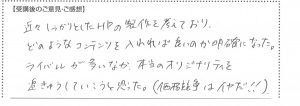 【受講後のご意見・ご感想】
近々しっかりとしたHPの製作を考えており、
どのようなコンテンツを入れれば良いのか明確になった。
ライバルが多いなか、本当のオリジナリティを
追きゅうしていこうと思った。(価格競争はイヤだ!!)